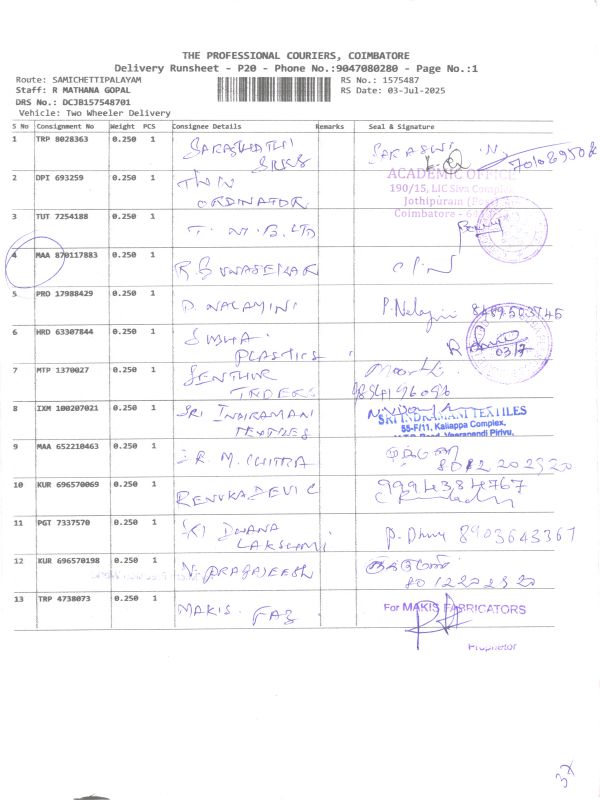 THE PROFESSIONAL COURIERS, COIMBATORE
Delivery Runsheet - P20 - Phone No.:9047080280 - Page No.:1
Route: SAMICHETTIPALAYAM
RS No.: 1575487
Staff: R MATHANA GOPAL
RS Date: 03-Jul-2025
DRS No.: DCJB157548701
Vehicle: Two Wheeler Delivery
S No Consignment No Weight PCS Consignee Details Remarks Seal & Signature
1 TRP 8028363 0.250 1
SARASWATHI
SARASWI .N
2 DPI 693259 0.250 1 TWIN
ORDINATOR
ACADEMIC OFFICE
190/15, LIC Siva Complex
Jothipuram (Post)
Coimbatore -
3 TUT 7254188 0.250 1 T. N. B. LTD
4 MAA 870117883 0.250 1
5 PRO 17988429 0.250 1 D. NALAMINI
8489503745
6 HRD 63307844 0.250 1 SUBHA
PLASTICS
03/7
7 MTP 1370027 0.250 1 SENTHUR
TRDERS
8 IXM 100207021 0.250 1 SRI INDIRAMANI
TEXTILES
SRI INDRAMANI TEXTILES
55-F/11, Kaliappa Complex,
9 MAA 652210463 0.250 1 R. M. CHITRA
8012202320
10 KUR 696570069 0.250 1 RENUKADEVI C
9994384767
11 PGT 7337570 0.250 1 SRI DHANA
LAKSHMI
8903643367
12 KUR 696570198 0.250 1 N. PRAGAJEESH
8012202320
13 TRP 4738073 0.250 1 MAKIS. FAB
For MAKIS FABRICATORS
Proprietor